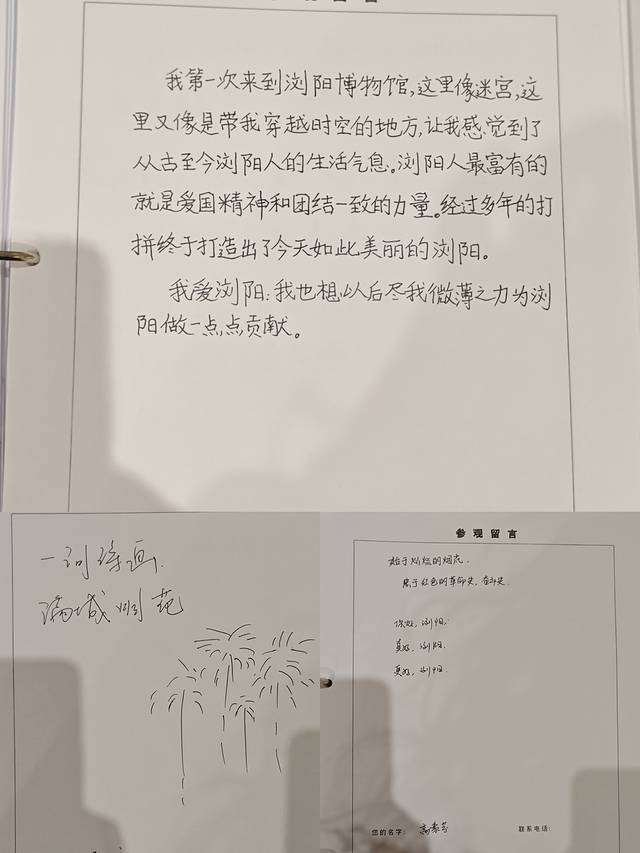 我第一次来到浏阳博物馆,这里像迷宫,这
里又像是带我穿越时空的地方,让我感觉到了
从古至今浏阳人的生活气息。浏阳人最富有的
就是爱国精神和团结一致的力量。经过多年的打
拼终于打造出了今天如此美丽的浏阳。
我爱浏阳:我也想以后尽我微薄之力为浏
阳做一点点贡献。
一河诗画
满城烟花
参观留言
始于灿烂的烟花,
属于红色的革命史,奋斗史.
你好,浏阳.
真好,浏阳.
更好,浏阳.
您的名字:
联系电话: